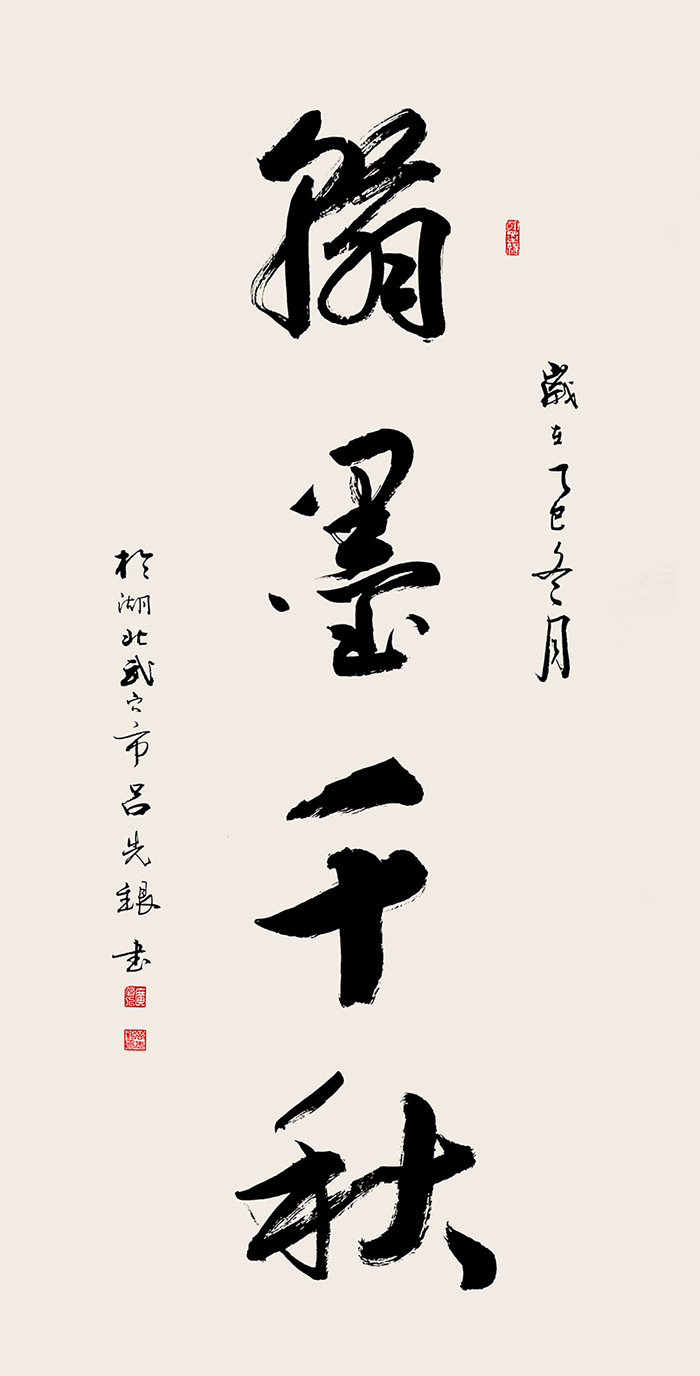 歲在乙巳冬月
翰墨千秋
於湖北武穴市吕先銀書